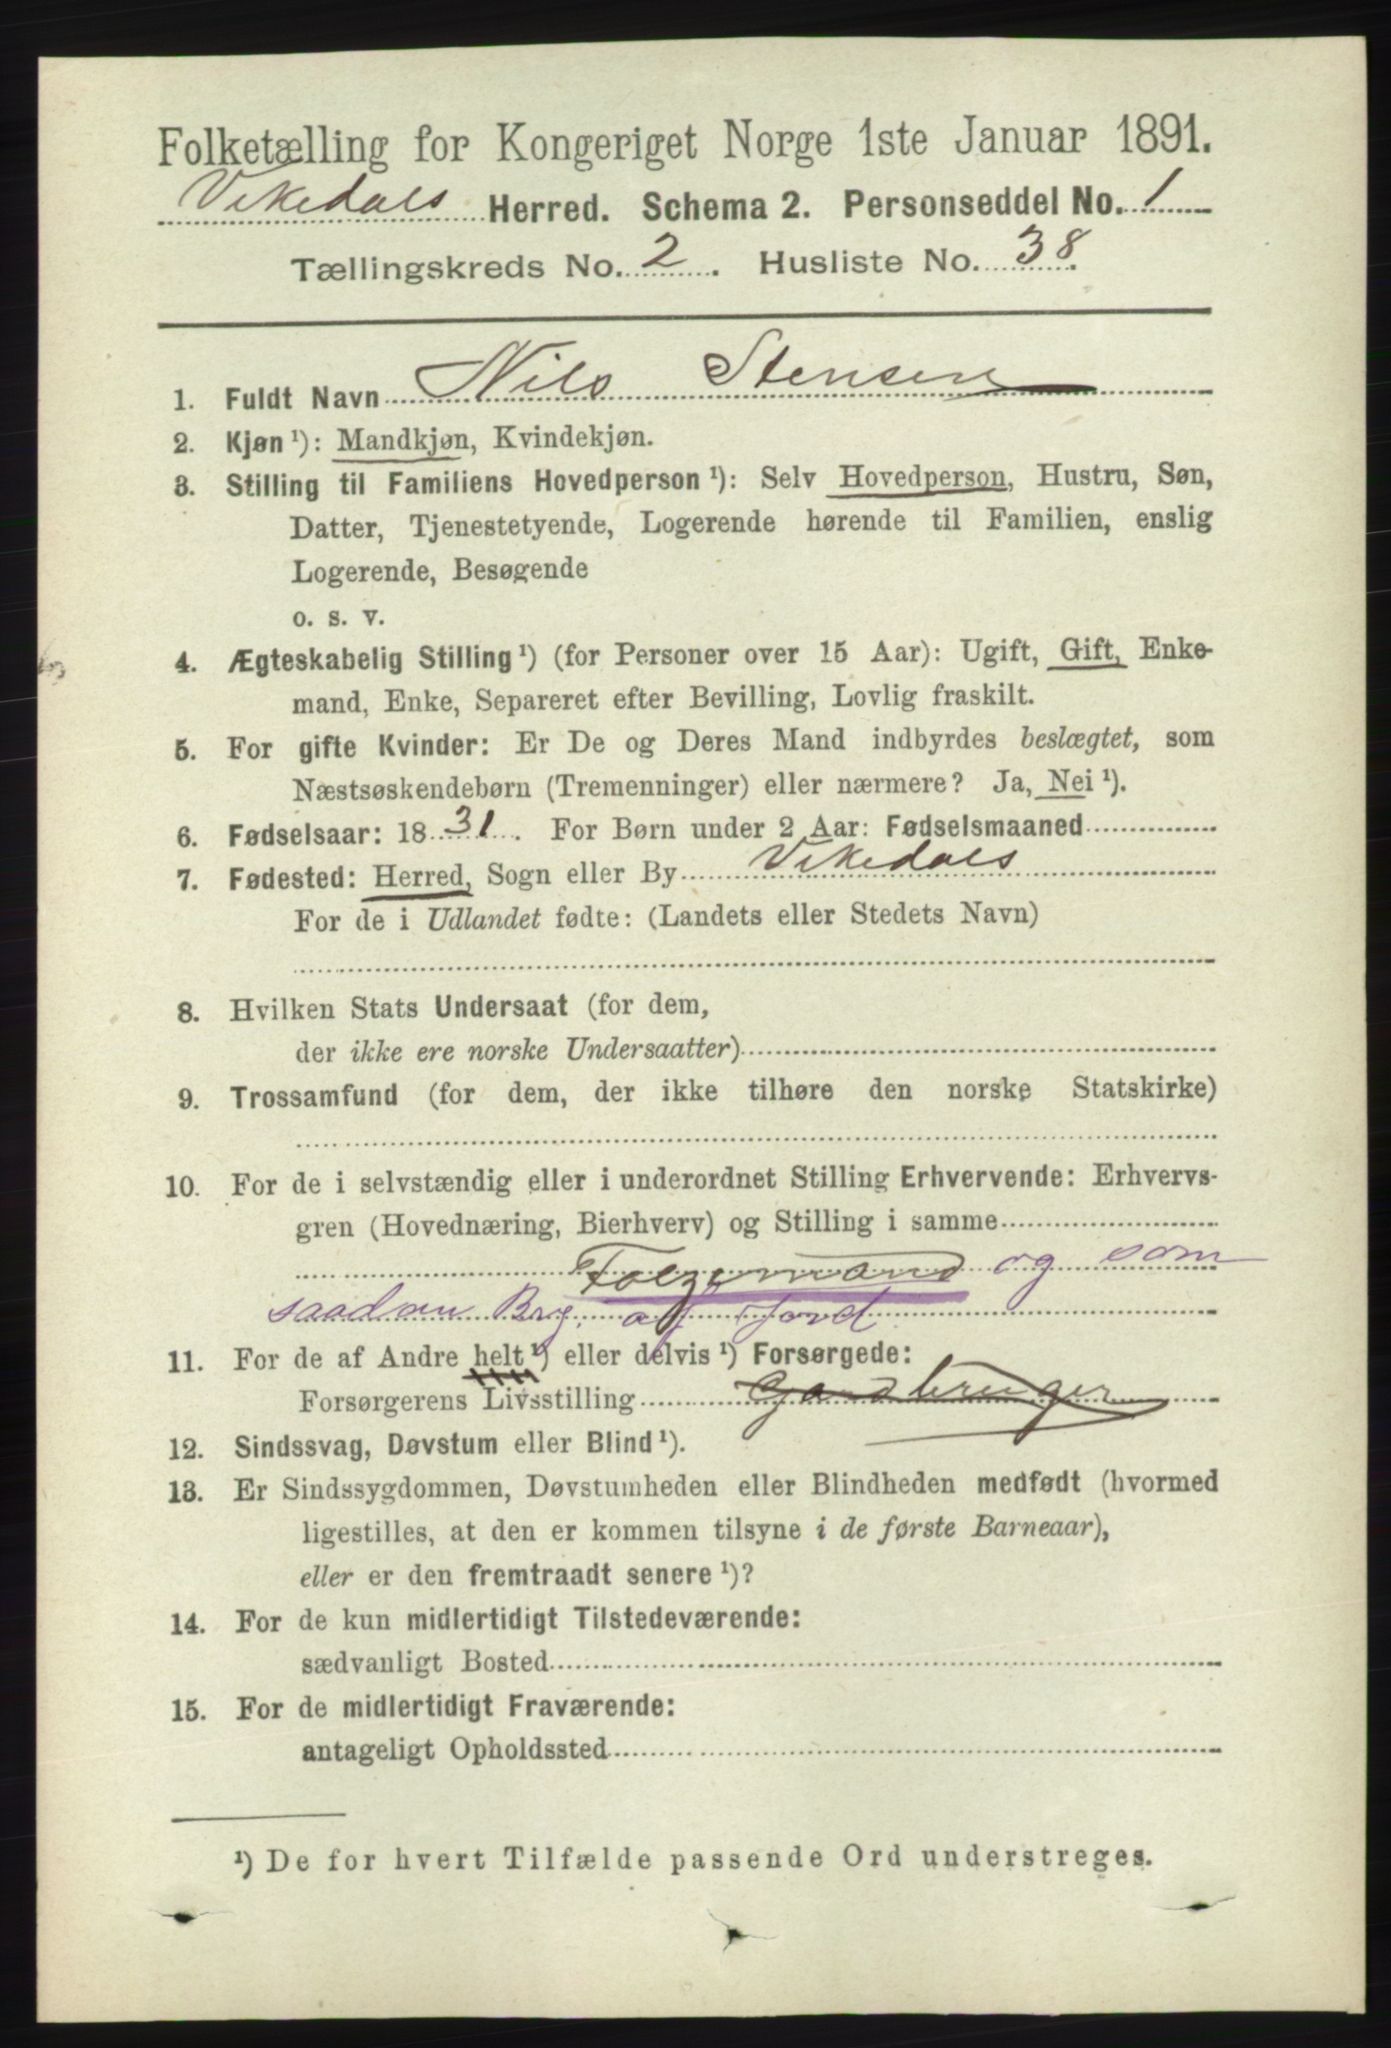 Folketælling for Kongeriget Norge 1ste Januar 1891.
Vikedals Herred. Schema 2. Personseddel No. 1
Tællingskreds No. 2. Husliste No. 38.
1. Fuldt Navn Nils Stensen
2. Kjøn ¹): Mandkjøn, Kvindekjøn.
3. Stilling til Familiens Hovedperson ¹): Selv Hovedperson, Hustru, Søn,
Datter, Tjenestetyende, Logerende hørende til Familien, enslig
Logerende, Besøgende
o. s. v.
4. Ægteskabelig Stilling ¹) (for Personer over 15 Aar): Ugift, Gift, Enke-
mand, Enke, Separeret efter Bevilling, Lovlig fraskilt.
5. For gifte Kvinder: Er De og Deres Mand indbyrdes beslægtet, som
Næstsøskendebørn (Tremenninger) eller nærmere? Ja, Nei ¹).
6. Fødselsaar: 1831. For Børn under 2 Aar: Fødselsmaaned
7. Fødested: Herred, Sogn eller By Vikedals
For de i Udlandet fødte: (Landets eller Stedets Navn)
8. Hvilken Stats Undersaat (for dem,
der ikke ere norske Undersaatter)
9. Trossamfund (for dem, der ikke tilhøre den norske Statskirke)
10. For de i selvstændig eller i underordnet Stilling Erhvervende: Erhvervs-
gren (Hovednæring, Bierhverv) og Stilling i samme
Folgemand og som
saadan Brg. af Jord
11. For de af Andre helt ¹) eller delvis ¹) Forsørgede:
Forsørgerens Livsstilling Gaardbruger
12. Sindssvag, Døvstum eller Blind ¹).
13. Er Sindssygdommen, Døvstumheden eller Blindheden medfødt (hvormed
ligestilles, at den er kommen tilsyne i de første Barneaar),
eller er den fremtraadt senere ¹)?
14. For de kun midlertidigt Tilstedeværende:
sædvanligt Bosted
15. For de midlertidigt Fraværende:
antageligt Opholdssted
¹) De for hvert Tilfælde passende Ord understreges.